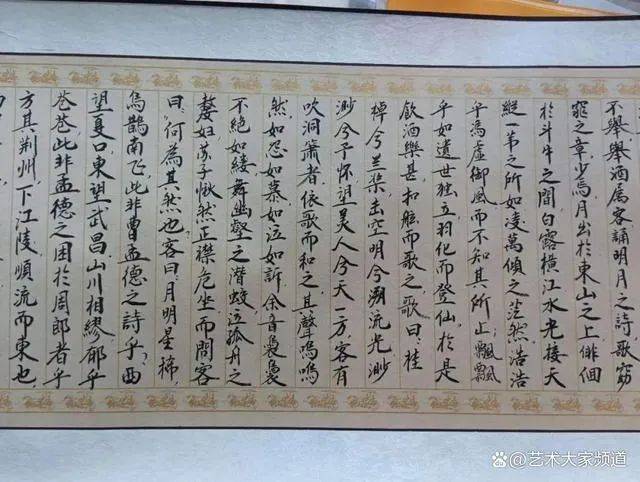 不舉,舉酒屬客,誦明月之詩,歌窈
窕之章,少焉,月出於東山之上,徘徊
於斗牛之間,白露橫江,水光接天
縱一苇之所如,凌萬傾之茫然,浩浩
乎馮虛御風而不知其所止,飄飄
乎如遺世独立,羽化而登仙,於是
飲酒樂甚,扣舷而歌之,歌曰,桂
棹兮兰槳,击空明兮溯流光,渺
渺兮予怀,望美人兮天一方,客有
吹洞簫者,依歌而和之,其聲嗚嗚
然,如怨如慕,如泣如訴,余音裊裊
不絕如縷,舞幽壑之潛蛟,泣孤舟之
嫠婦,苏子愀然,正襟危坐,而問客
曰,何為其然也,客曰,月明星稀,
烏鵲南飞,此非曹孟德之詩乎,西
望夏口,東望武昌,山川相繆,郁乎
苍苍,此非孟德之困於周郎者乎
方其荆州,下江陵,順流而東也,
@艺术大家频道